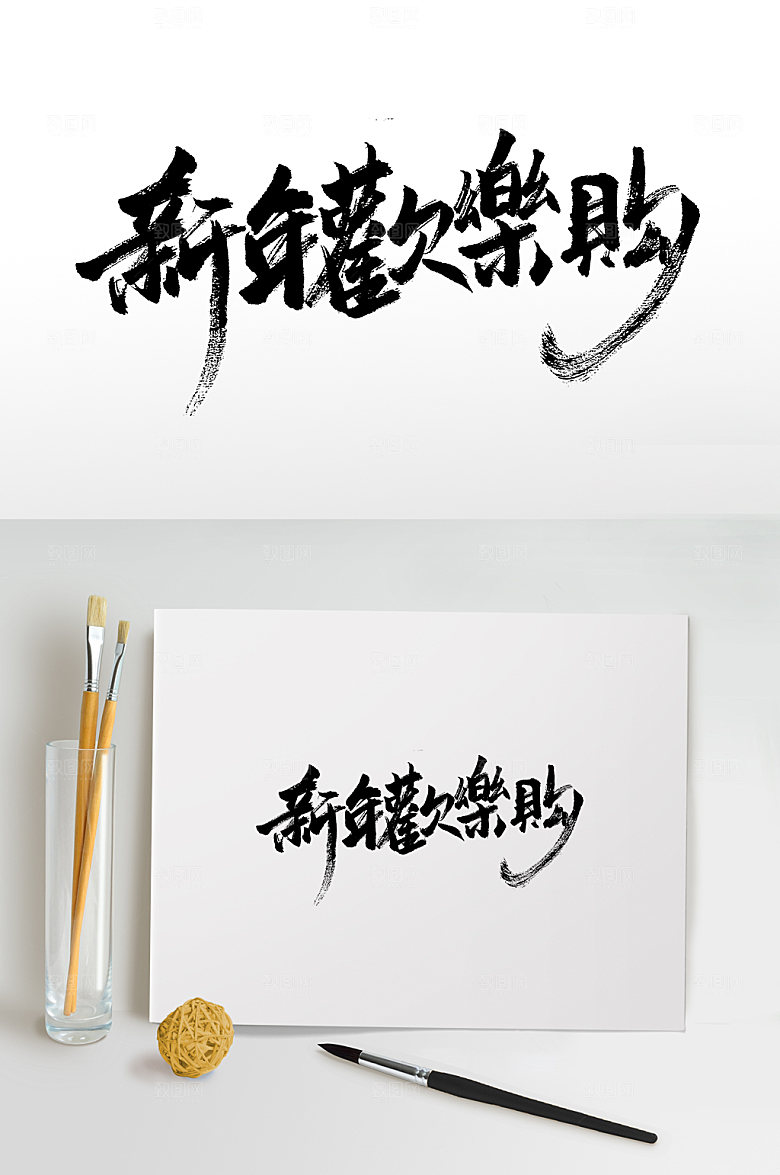 新年歡樂購
新年歡樂購